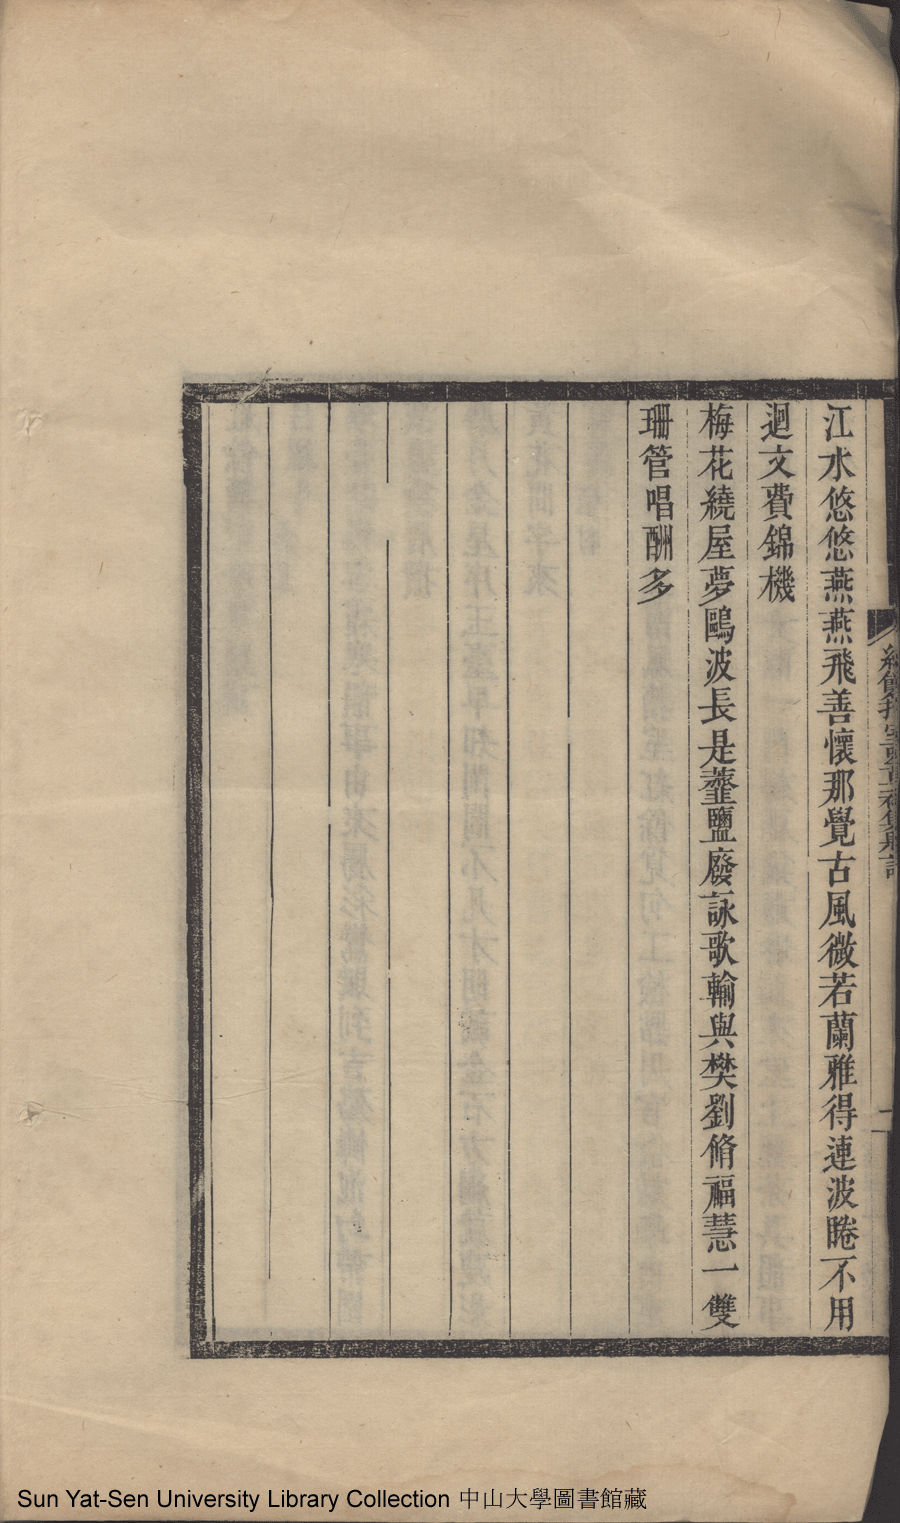 江水悠悠燕燕飛善懷那覺古風微若蘭雅得連波睠不用
迴文費錦機
梅花繞屋夢鷗波長是虀鹽廢詠歌輸與樊劉脩福慧一雙
珊管唱酬多
二
Sun Yat-Sen University Library Collection 中山大學圖書館藏